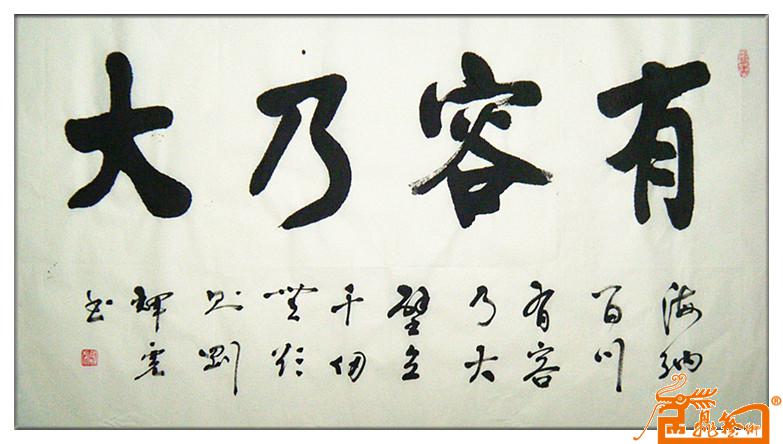 有容乃大
海纳
百川
有容
乃大
壁立
千仞
無欲
则刚
輝雲
书